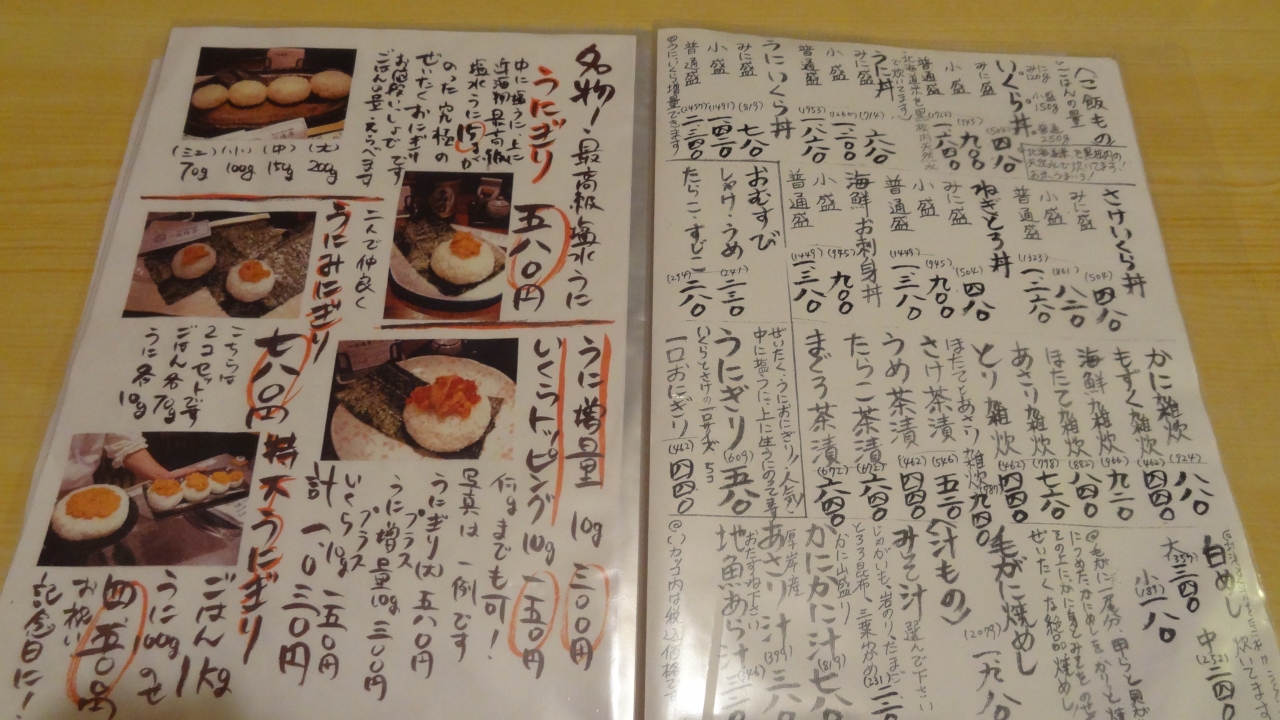 名物!最高級塩水うに
うにぎり
五八〇円
中に塩うに、上に
近海物最高級
塩水うに15gが
のった究極の
ぜいたくおにぎり
お値段いっしょです
ごはんの量えらべます
(大)
200g
(中)
150g
(小)
100g
(ミニ)
70g
うにみにぎり
二人で仲良く
七八〇円
こちらは
2コセットです
ごはん各70g
うに各10g
うに増量 10g 三〇〇円
いくらトッピング 10g 一五〇円
何gまでも可!
写真は一例です
うにぎり(大)五八〇円
プラス
うに増量10g 三〇〇円
プラス
いくら10g 一五〇円
計一、〇三〇円
特大うにぎり
ごはん1kg
うに100gのせ
四、五〇〇円
お祝い
記念日に!
〈ご飯もの〉
ごはんの量
みに120g
小盛150g
普通250g
いくら丼
みに盛 四八〇
小盛 (945) 九〇〇
普通盛
うに丼
みに盛 (714) 六八〇
小盛 (1260) 一二〇〇
普通盛 (1953) 一八六〇
うにいくら丼
みに盛 (819) 七八〇
小盛 (1491) 一四二〇
普通盛 (2457) 二三四〇
さけいくら丼
みに盛 (504) 四八〇
小盛 (861) 八二〇
普通盛 (1323) 一二六〇
ねぎとろ丼
みに盛 (504) 四八〇
小盛 (945) 九〇〇
普通盛 (1449) 一三八〇
海鮮お刺身丼
小盛 (945) 九〇〇
普通盛 (1449) 一三八〇
おむすび
しゃけ・うめ (241) 二三〇
たらこ・すじこ (294) 二八〇
かに雑炊 (924) 八八〇
もずく雑炊 (462) 四四〇
海鮮雑炊 (966) 九二〇
ほたて雑炊 (882) 八四〇
あさり雑炊 (798) 七六〇
とり雑炊 (462) 四四〇
ほたてとあさり雑炊 (987) 九四〇
さけ茶漬 (546) 五二〇
うめ茶漬 (462) 四四〇
たらこ茶漬 (672) 六四〇
まぐろ茶漬 (672) 六四〇
ぜいたく、うにおにぎり!人気!
中に塩うに、上に生うにのってます
うにぎり (609) 五八〇
いくらとさけの一口サイズ
一口おにぎり (462) 四四〇
白めし
大 三四〇
中 (252) 二四〇
小 (189) 一八〇
毛がに焼めし
(2079) 一九八〇
〈汁もの〉
みそ汁 選んで下さい
じゃがいも、岩のり、たまご
とろろ昆布、三葉、わかめ (231) 二二〇
かに山盛り
かにかに汁 (819) 七八〇
厚岸産
あさり汁 (399) 三八〇
おたずね下さい
地魚あら汁